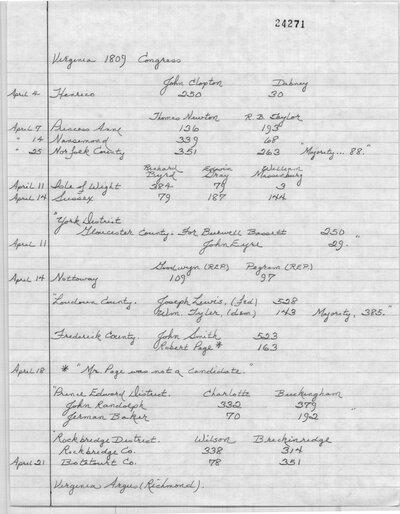 24271
Virginia 1809 Congress
John Clopton Dabney
April 4 Henrico 250 30
Thomas Newton R.B. Taylor
April 7 Princess Anne 136 193
" 14 Nansemond 339 68
" 25 Norfolk County 351 263 "Majority... 88."
Richard Edwin William
Byrd Gray Massenburg
April 11 Isle of Wight 384 79 3
April 14 Sussex 79 187 144
"York District
Gloucester County. For Burwell Bassett 250
April 11 John Eyre 29."
Goodwyn (REP.) Pegram (REP.)
April 14 Nottoway 109 97
"Loudoun County. Joseph Lewis, (fed) 528
Wm. Tyler, (dem) 143 Majority, 385."
Frederick County. John Smith 523
Robert Page * 163
April 18 * "Mr. Page was not a candidate."
"Prince Edward District. Charlotte Buckingham
John Randolph 332 379
Jerman Baker 70 192 "
"Rockbridge District. Wilson Breckinridge
Rockbridge Co. 338 314
April 21 Botetourt Co. 78 351
Virginia Argus (Richmond).